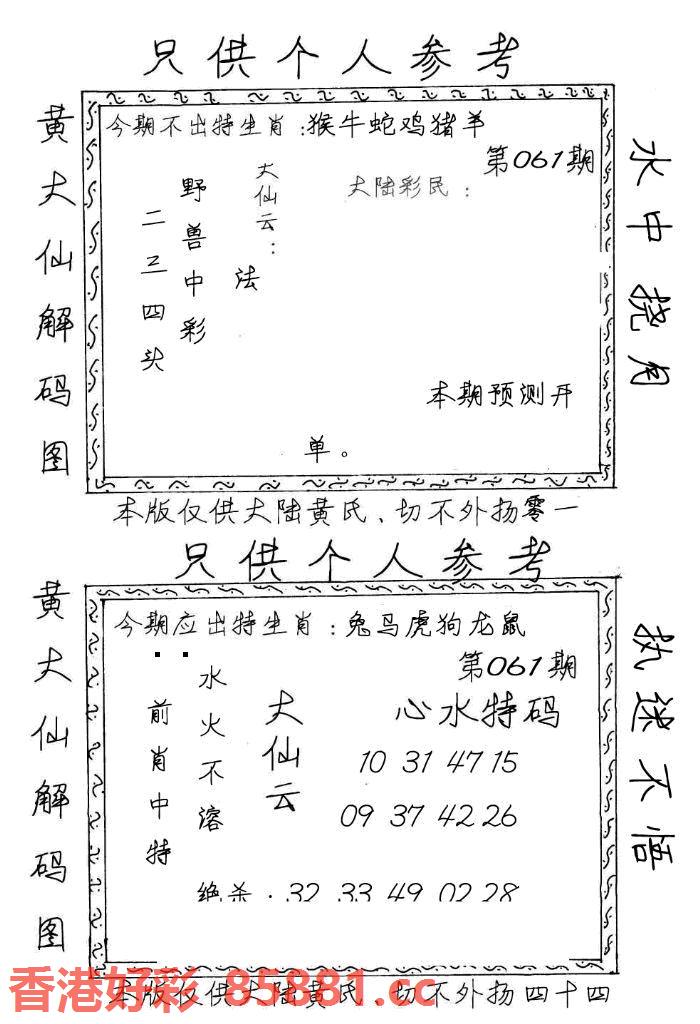 只供个人参考
黄大仙解码图
今期不出特生肖：猴牛蛇鸡猪羊
第061期
大陆彩民：
大仙云：
法
野兽中彩
二三四头
本期预测开
单。
水中挠月
本版仅供大陆黄氏、切不外扬零一
只供个人参考
黄大仙解码图
今期应出特生肖：兔马虎狗龙鼠
第061期
心水特码
10 31 47 15
09 37 42 26
大仙云
水火不溶
前肖中特
绝杀：32 33 49 02 28
执迷不悟
香港好彩 85881.cc
本版仅供大陆黄氏、切不外扬四十四